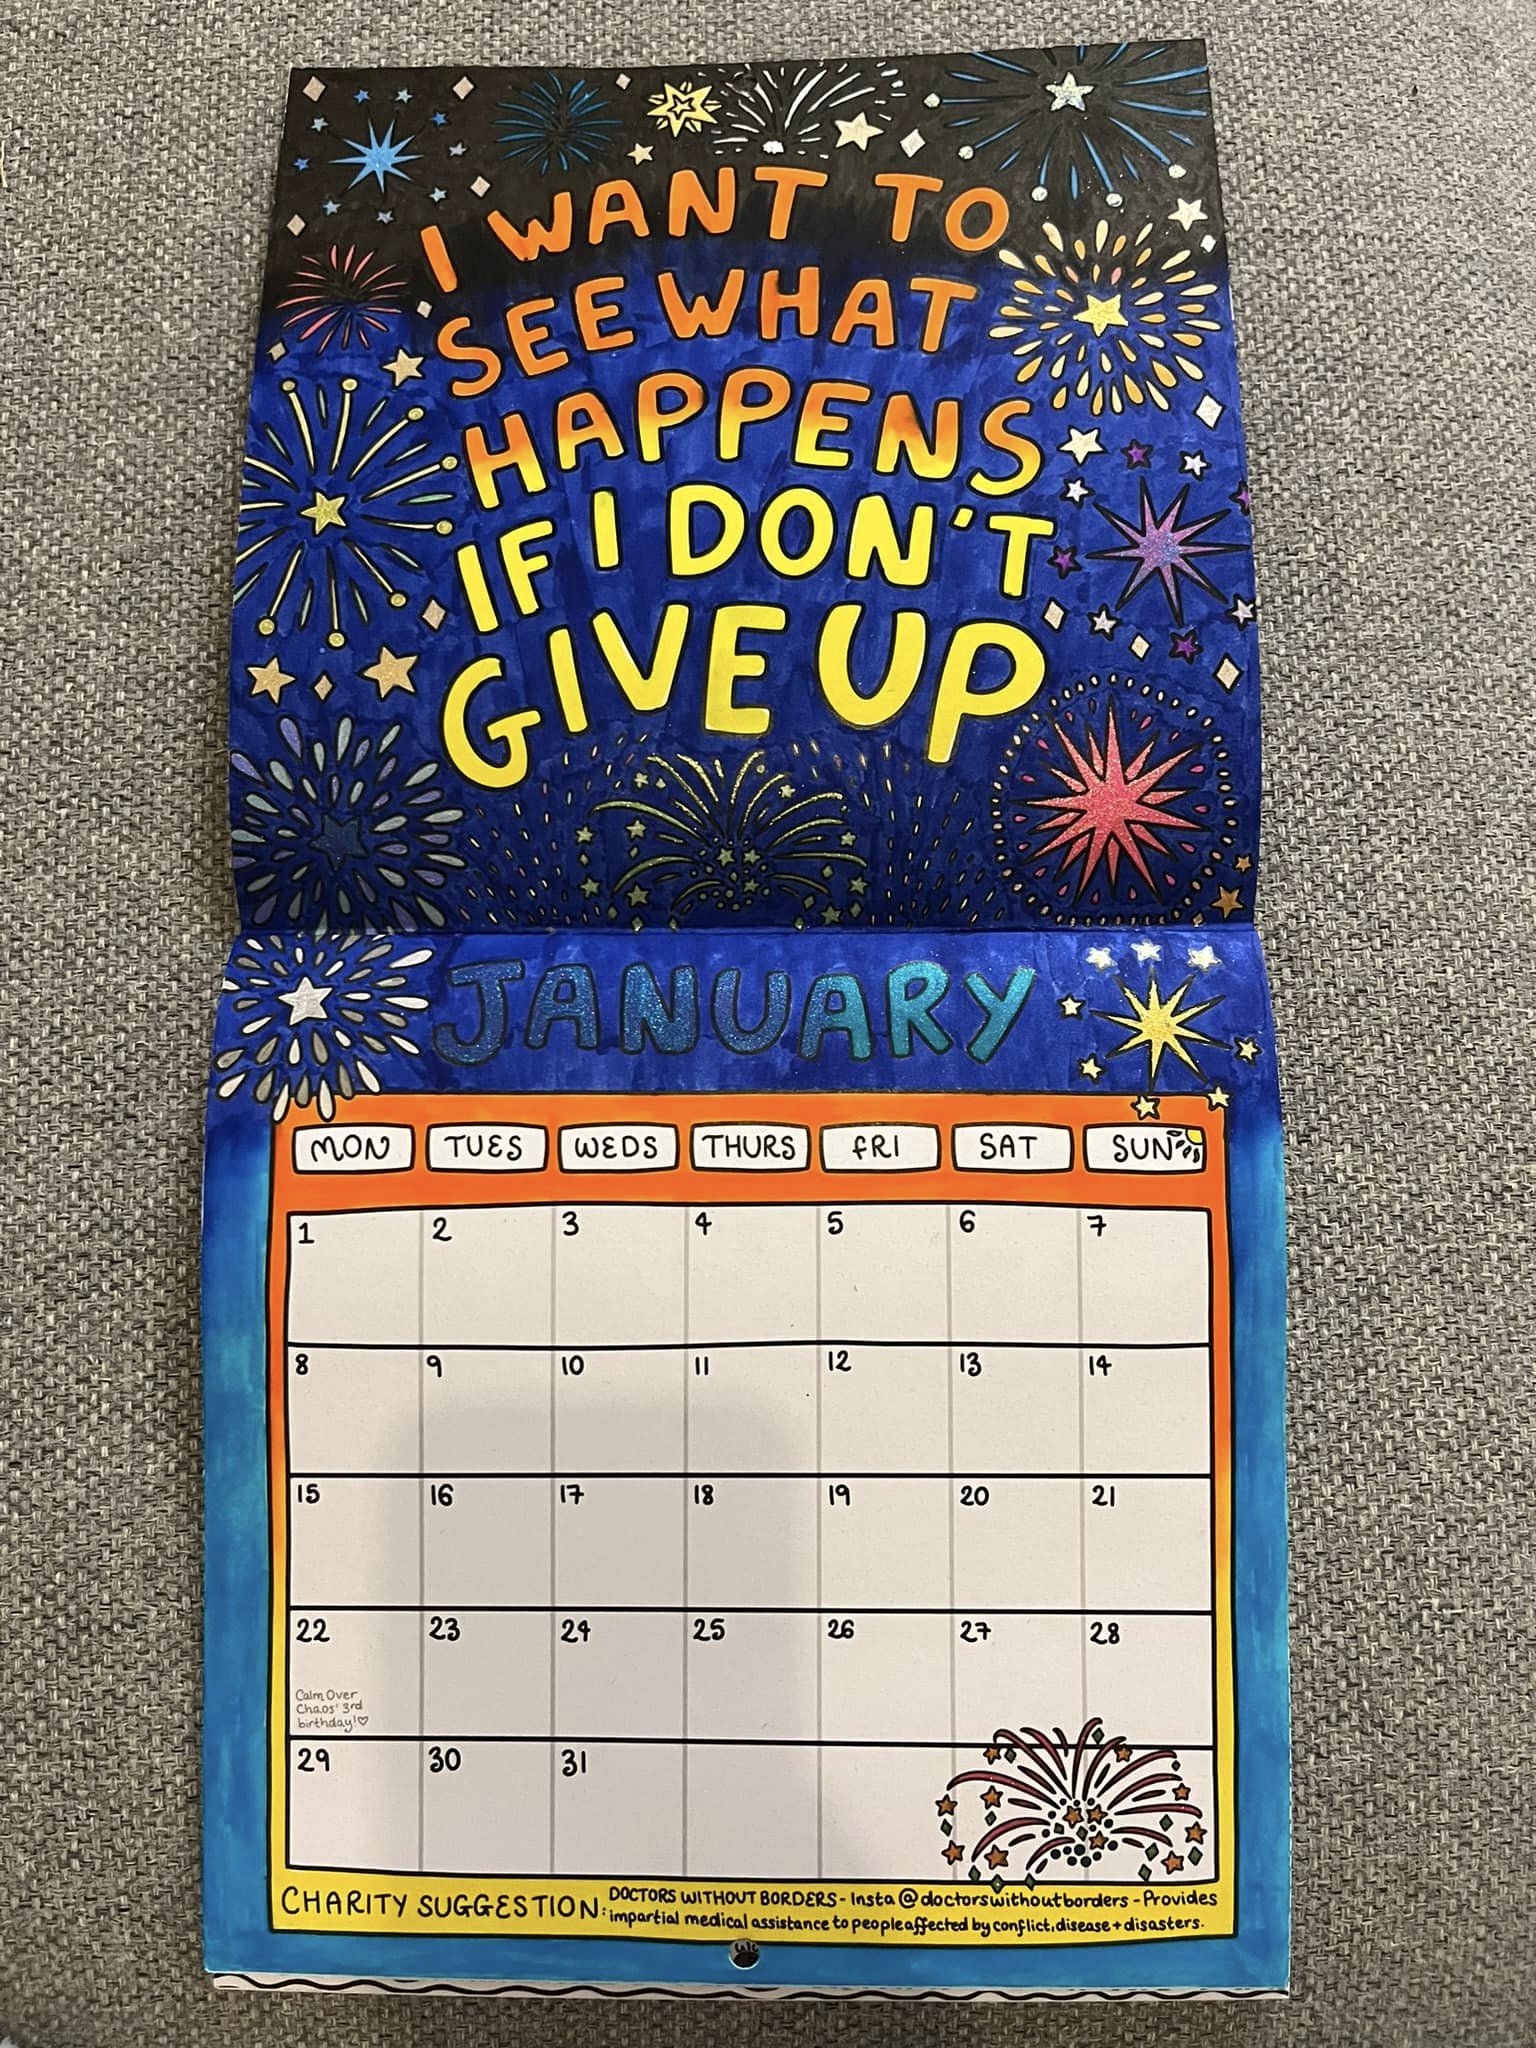 I WANT TO
SEE WHAT
HAPPENS
IF I DON'T
GIVE UP
JANUARY
MON TUES WEDS THURS FRI SAT SUN
1 2 3 4 5 6 7
8 9 10 11 12 13 14
15 16 17 18 19 20 21
22 23 24 25 26 27 28
Calm Over
Chaos' 3rd
birthday!♡
29 30 31
CHARITY SUGGESTION: DOCTORS WITHOUT BORDERS - Insta @doctorswithoutborders - Provides
impartial medical assistance to people affected by conflict, disease + disasters.